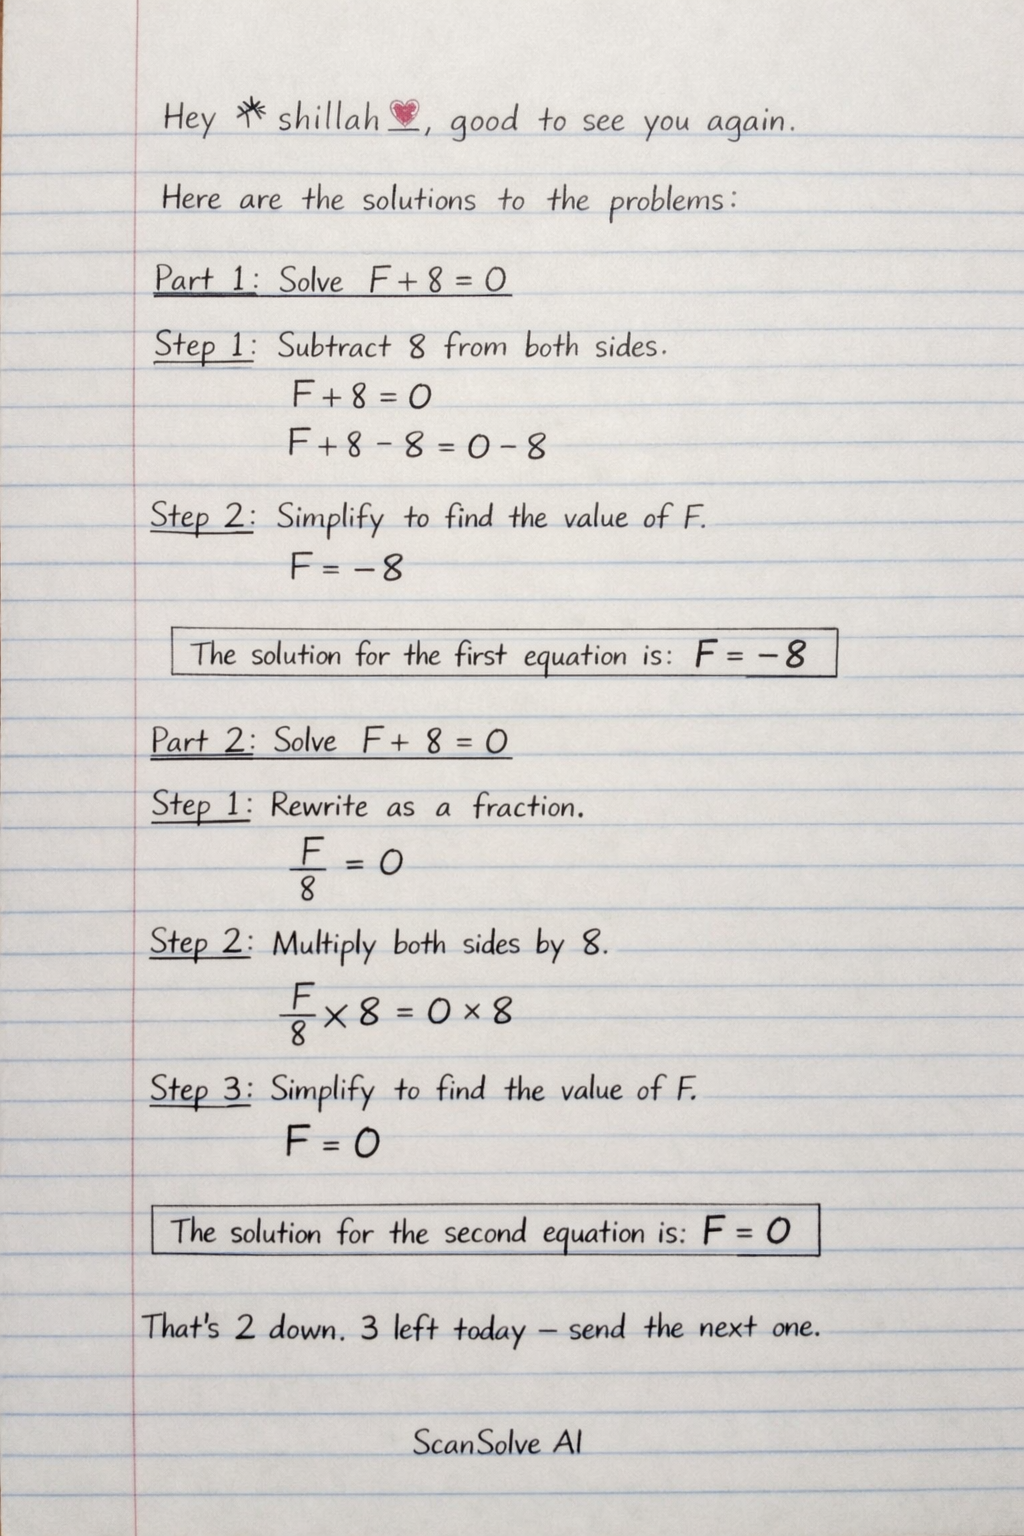 Hey * shillah ❤️, good to see you again.
Here are the solutions to the problems:
Part 1: Solve F + 8 = 0
Step 1: Subtract 8 from both sides.
F + 8 = 0
F + 8 - 8 = 0 - 8
Step 2: Simplify to find the value of F.
F = -8
The solution for the first equation is: F = -8
Part 2: Solve F + 8 = 0
Step 1: Rewrite as a fraction.
F/8 = 0
Step 2: Multiply both sides by 8.
F/8 × 8 = 0 × 8
Step 3: Simplify to find the value of F.
F = 0
The solution for the second equation is: F = 0
That's 2 down. 3 left today – send the next one.
ScanSolve AI